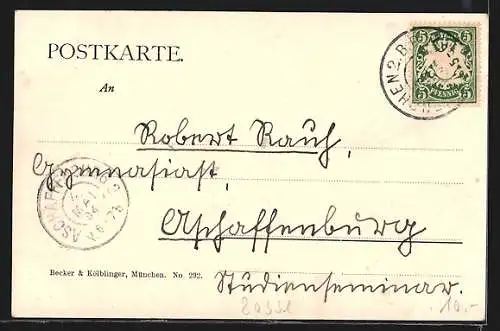 POSTKARTE.
An
5 5
PFENNIG
Robert Rauh,
Gymnasiast,
Aschaffenburg
Becker & Kölblinger, München. No. 292.
Studienseminar.
10.-